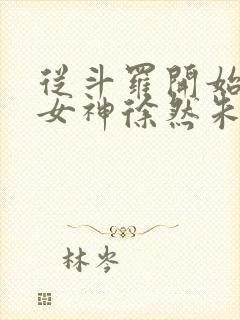 從斗羅開始
女神徐然朱
林岑